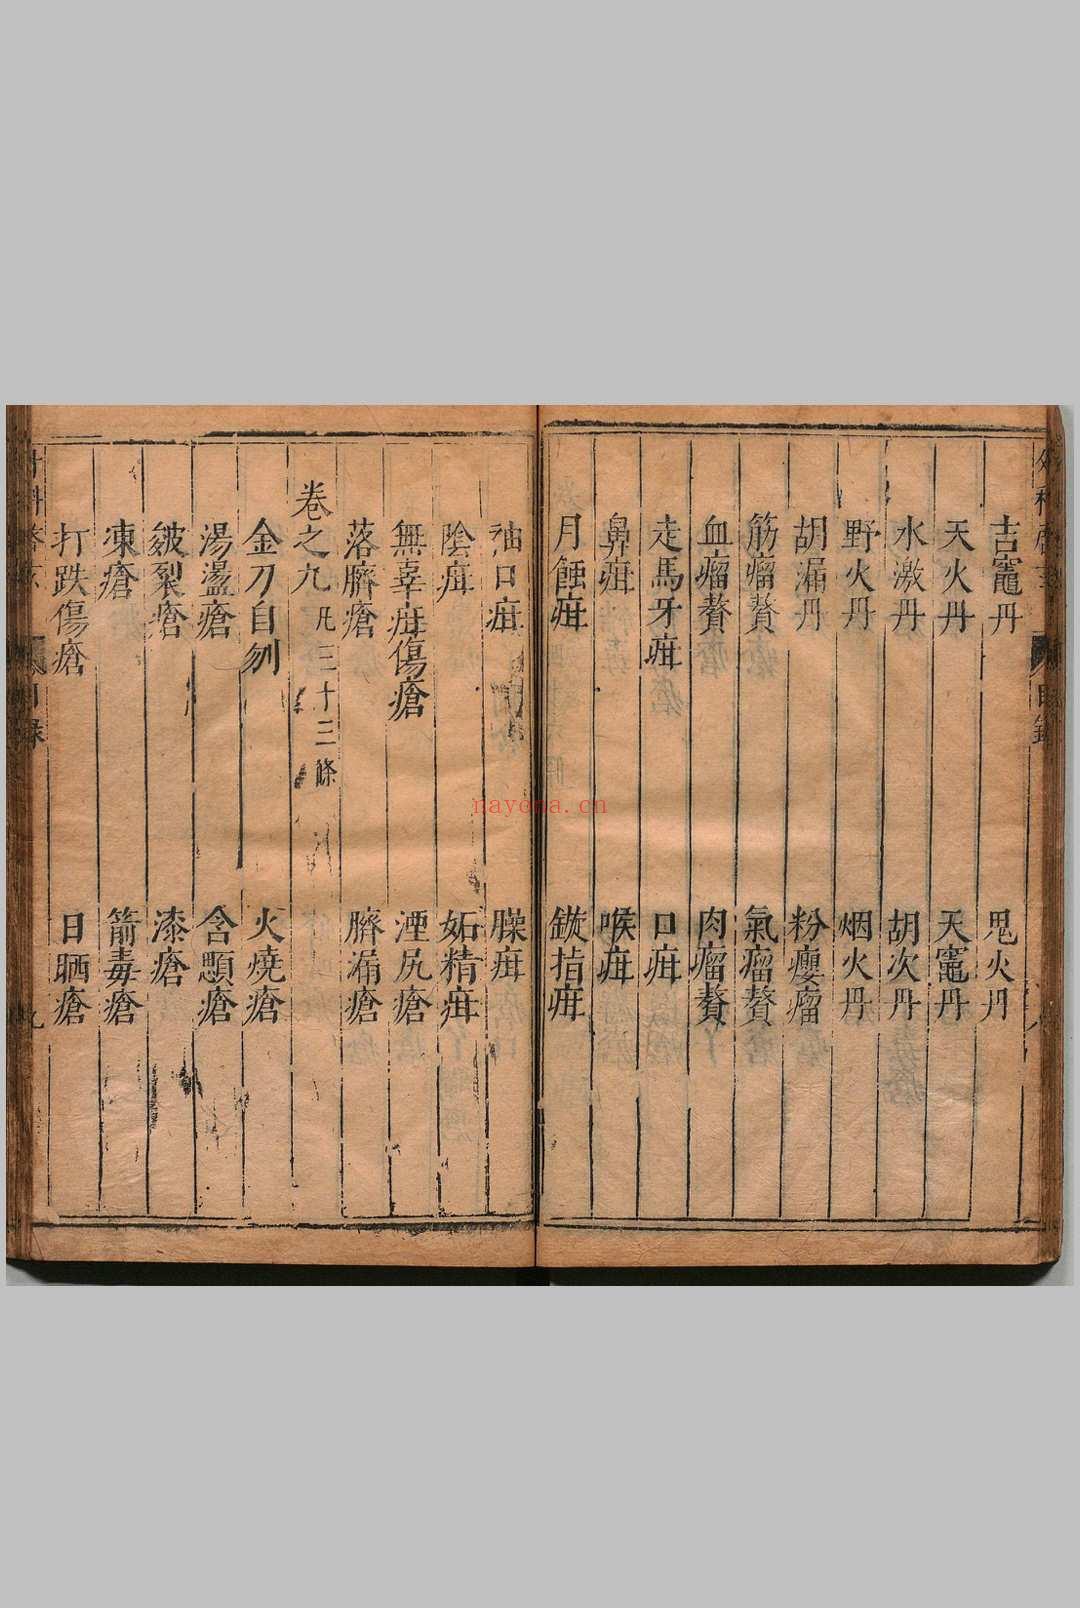 吉竈丹 鬼火丹
天火丹 天竈丹
水激丹 胡次丹
野火丹 烟火丹
胡漏丹 粉癭瘤
筋瘤贅 氣瘤贅
血瘤贅 肉瘤贅
走馬牙疳 口疳
鼻疳 喉疳
月蝕疳 鏇指疳
袖口疳 臊疳
陰疳 妬精疳
無辜疳傷瘡 湮尻瘡
落臍瘡 臍漏瘡
卷之九 凡三十三條
金刀自刎 火燒瘡
湯盪瘡 含顋瘡
皴裂瘡 漆瘡
凍瘡 箭毒瘡
打跌傷瘡 日晒瘡
nayona.cn